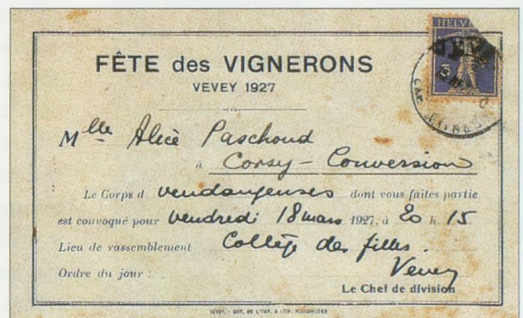 HELVE
FÊTE des VIGNERONS
VEVEY 1927
Mlle Alice Paschoud
à Corsy - Conversion
Le Corps d vendangeuses dont vous faites partie
est convoqué pour vendredi 18 mars 1927, à 20 h. 15
Lieu de rassemblement Collège des filles.
Ordre du jour : Vevey
Le Chef de division
VEVEY. - SOC. DE L'IMP. & LITH.